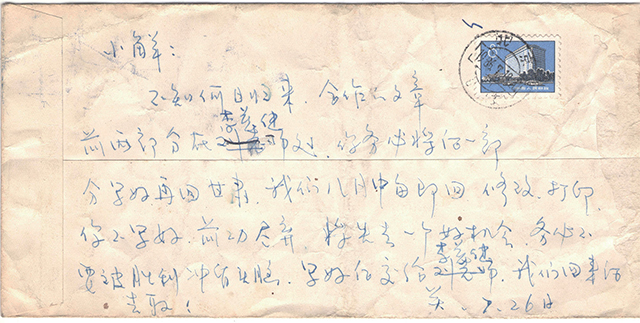 小解：
不知何日归来，合作的文章
李茂健
前两部分在王老师处，你务必将后一部
分写好再回甘肃，我们八月中旬即回修改、打印，
你不写好，前功尽弃，将失去一个好机会，务必不
李茂健
要被胜利冲昏头脑，写好后交给王老师，我们回来后
去取！ 7.26日